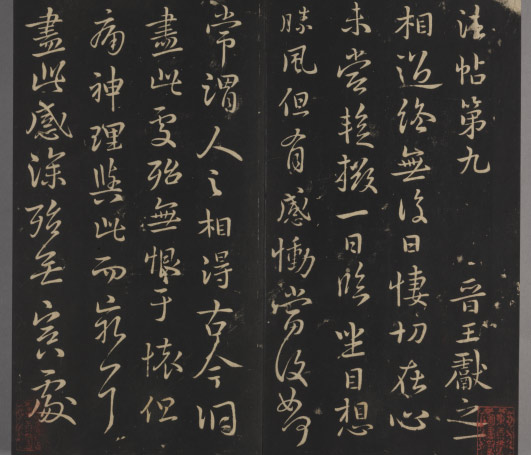 法帖第九 晋王獻之一
相過終無復日悽切在心
未嘗暫掇一日臨坐目想
勝風但有感慟當復如何
常謂人之相得古今洞
盡此處殆無恨于懷但
痛神理與此而窮耳
盡此感深殆無冥處